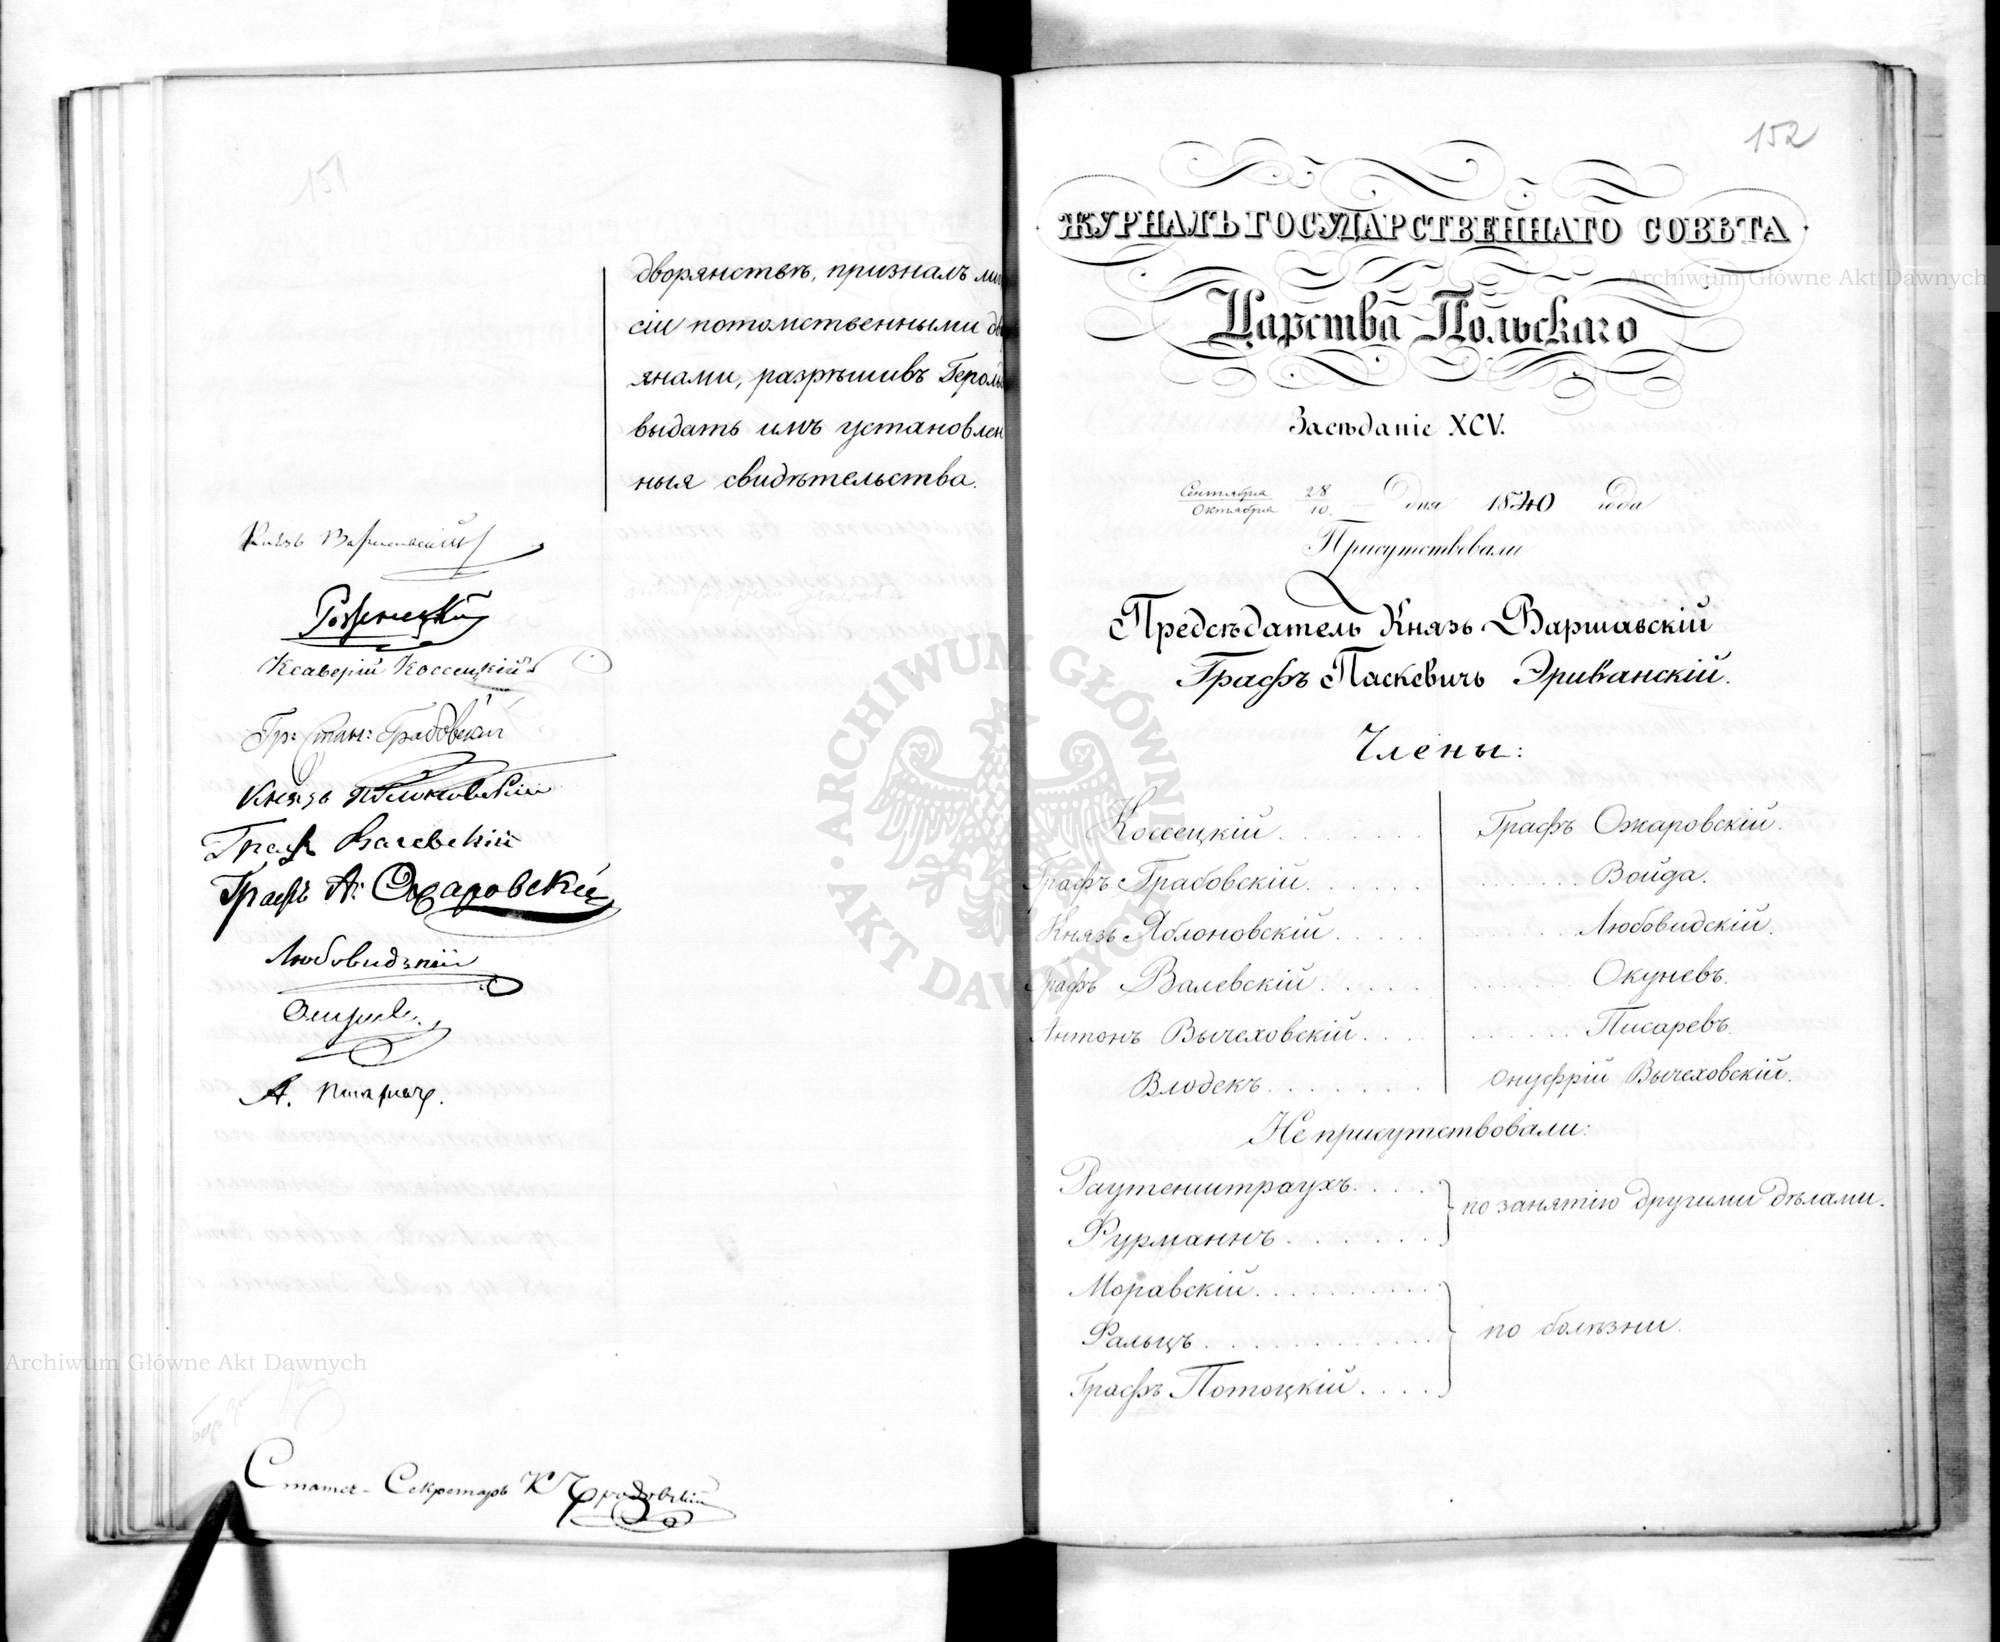 151
дворянствѣ, призналъ
сіи потомственными
янами, разрѣшивъ
выдать имъ установлен
ныя свидѣтельства.
Князь Варшавскій
Рожнецкій
Ксаверій Коссецкій
Гр: Стан: Грабовскій
Князь Яблоновскій
Графъ Валевскій
Графъ А: Ожаровскій
Любовидзкій
А. Писарев.
Статсъ-Секретарь К
152
ЖУРНАЛЪ ГОСУДАРСТВЕННАГО СОВѢТА
Царства Польскаго
Засѣданіе XCV.
Сентября 28
Октября 10. — Дня 1840 года
Присутствовали
Предсѣдатель Князь Варшавскій
Графъ Паскевичъ Эриванскій.
Члены:
Коссецкій
Графъ Грабовскій
Князь Яблоновскій
Графъ Валевскій
Антонъ Вычеховскій
Влодекъ
Графъ Ожаровскій.
Войда.
Любовидскій.
Окуневъ.
Писаревъ.
Онуфрій Вычеховскій.
Не присутствовали:
Раутенштраухъ
Фурманнъ
по занятію другими дѣлами.
Моравскій
Фальцъ
Графъ Потоцкій
по болѣзни.
Archiwum Główne Akt Dawnych
Archiwum Główne Akt Dawnych
ARCHIWUM GŁÓWNE AKT DAWNYCH